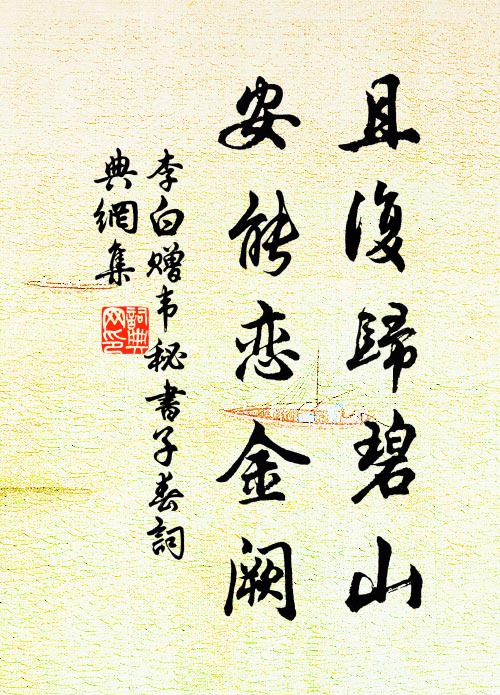 且復歸碧山
安能恋金阙
李白赠韦秘書子春詞
典網集
詞典
网印